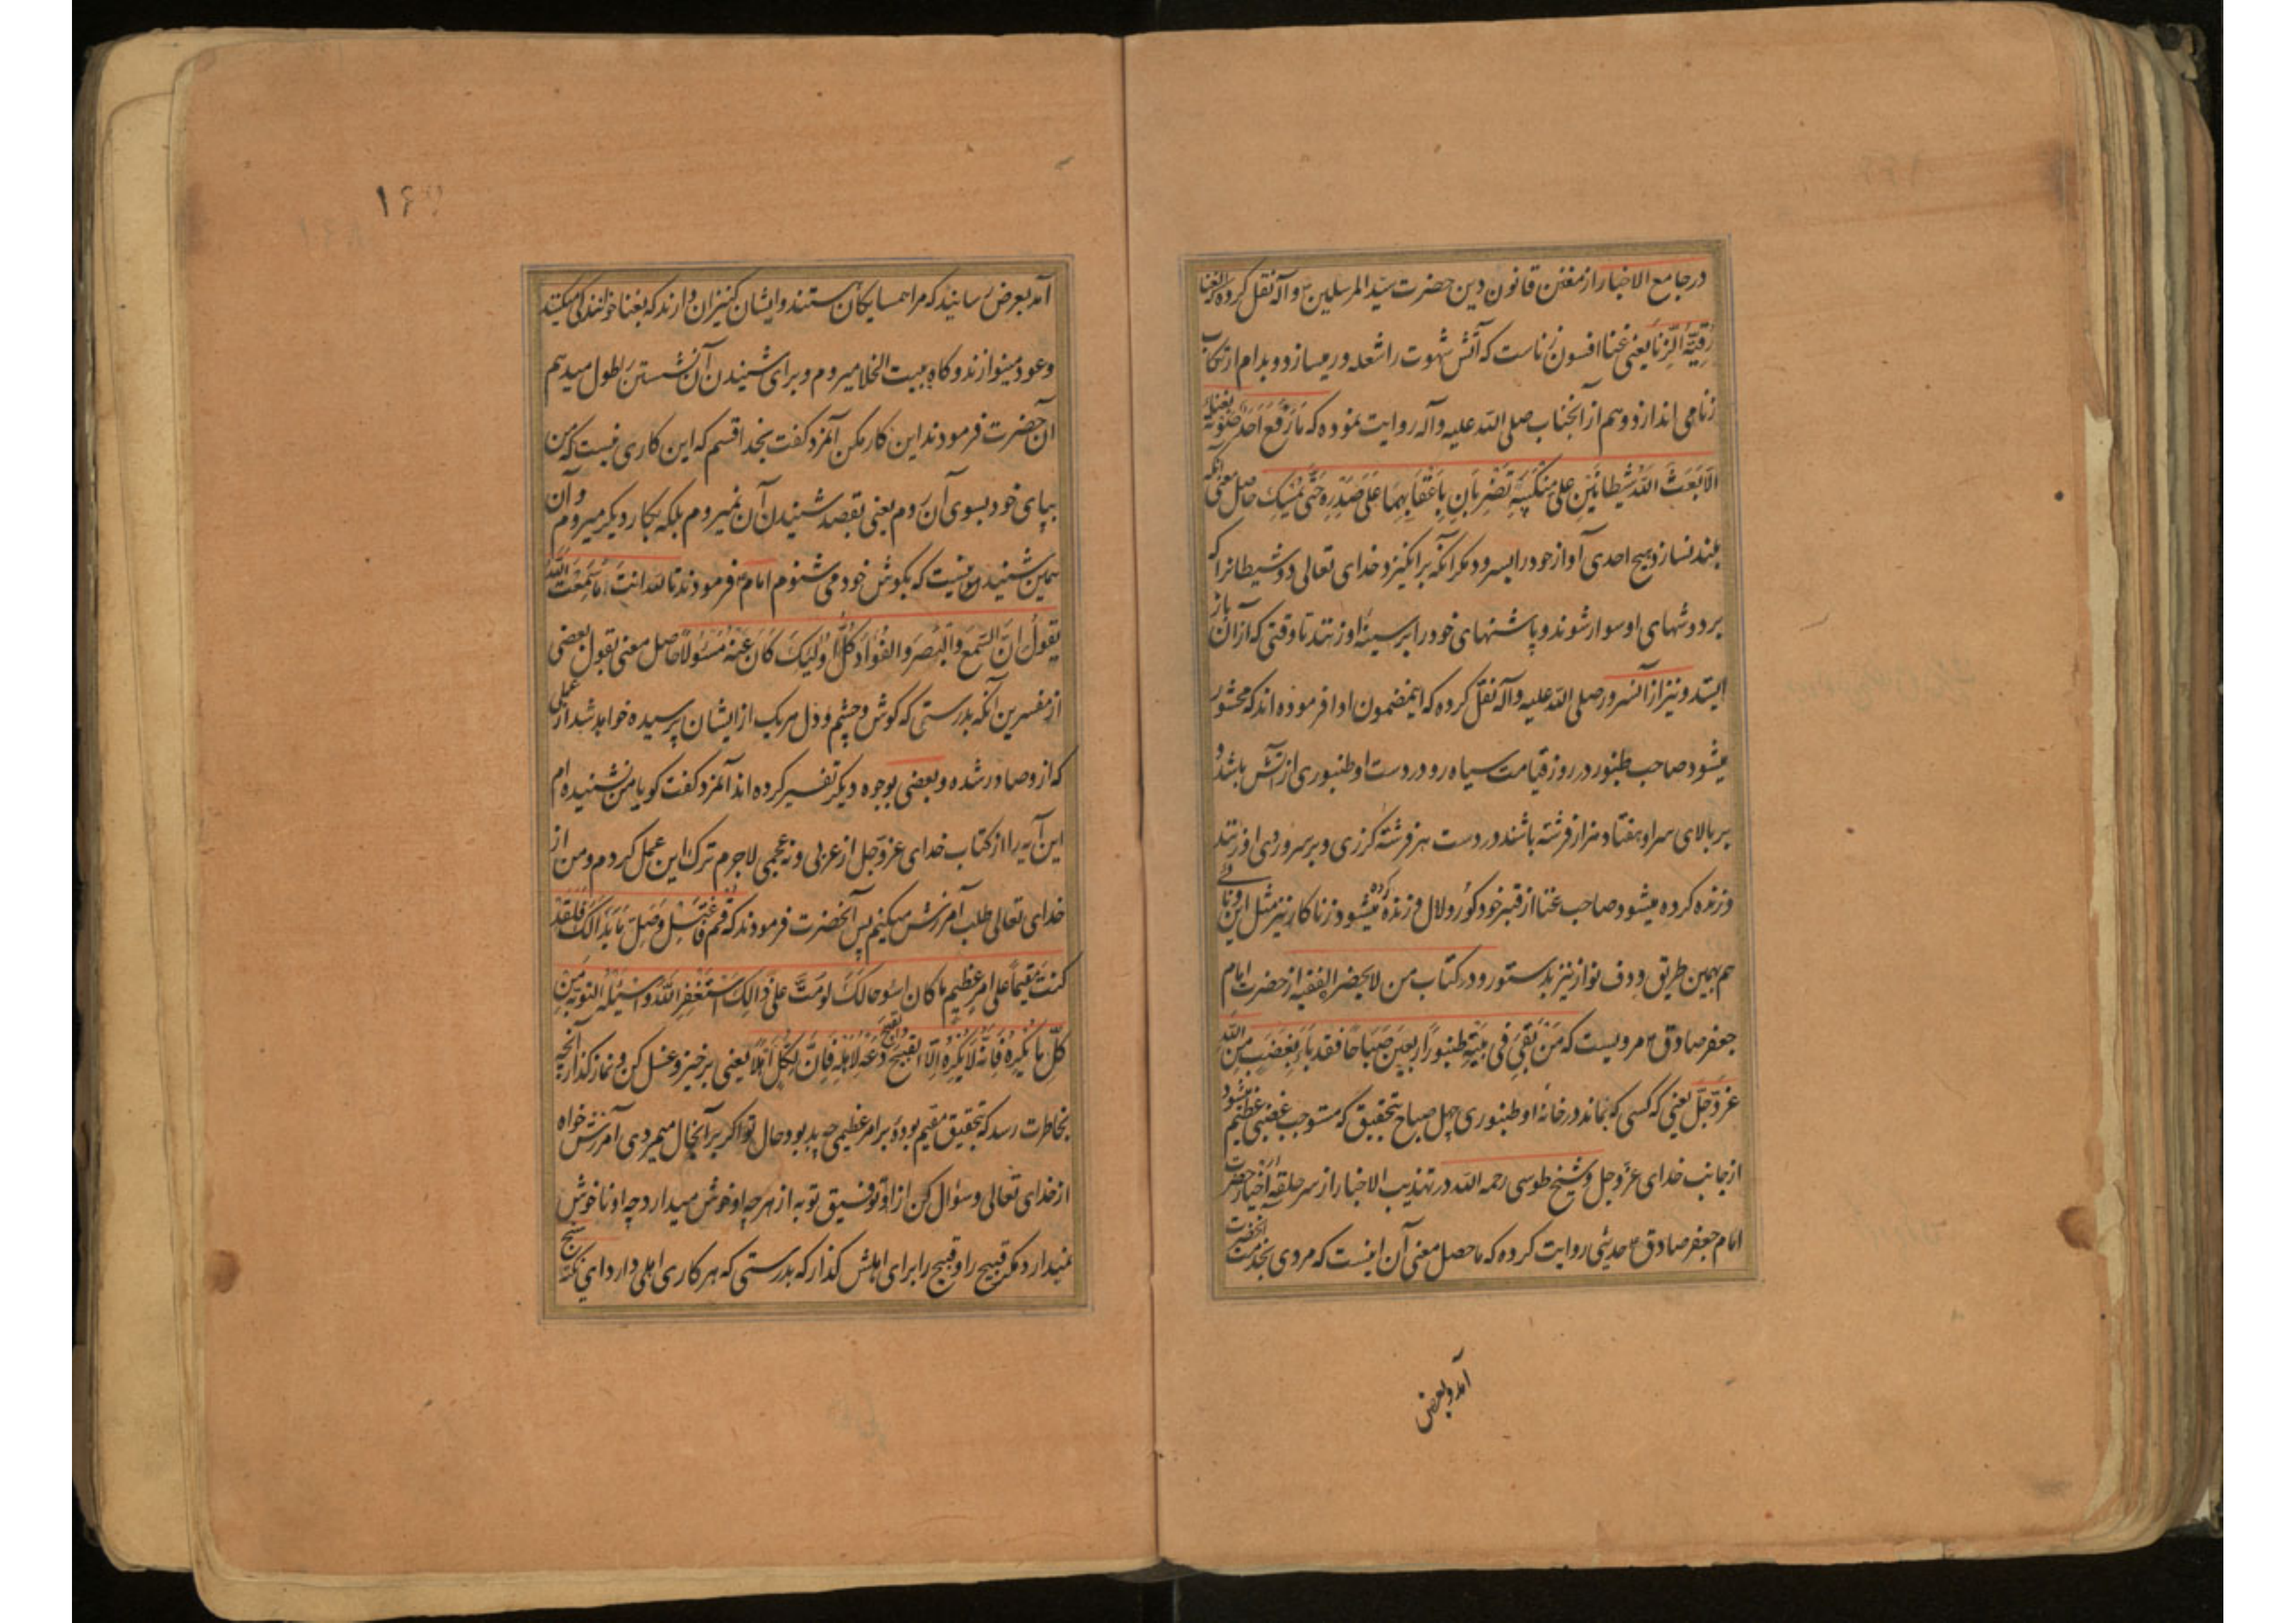 در جامع الاخبار از مقنن قانون دین حضرت سید المرسلین ص وآله نقل کرده که الغنا
رُقیَةُ الزِّنا یعنی غنا افسون زناست که آتش شهوت را شعله ور میسازد و بدام ارتکاب
زنا می اندازد و هم از آنجناب صلی الله علیه وآله روایت نموده که مَا رَفَعَ اَحَدٌ صَوتَهُ بغناء
الّا بَعَثَ اللّه شَیطانَینِ عَلی مَنکَبَیهِ تَضرِبانِ بِاَعقابِهِمَا عَلی صَدرِهِ حَتّی یُمسِکَ حاصل معنی آنکه
بلند نسازد هیچ احدی آواز خود را بسرود مکر آنکه برانکیزد خدای تعالی دو شیطانرا که
بر دوشهای او سوار شوند و پاشنهای خود را بر سینهٔ او زنند تا وقتی که از آن باز
ایستد و نیز از آنسرور صلی الله علیه وآله نقل کرده که اینمضمون ادا فرموده اند که محشور
میشود صاحب طنبور در روز قیامت سیاه رو در دست او طنبوری از آتش باشد و
بر بالای سر او هفتاد هزار فرشته باشند در دست هر فرشته کرزی و بر سر و روی او زنند
و زنده کرده میشود صاحب غنا از قبر خود کور و لال و زنده کرده میشود زناکار نیز مثل این و نائی
هم بهمین طریق و دف نواز نیز بدستور و در کتاب من لایحضر الفقیه از حضرت امام
جعفر صادق ع مرویست که مَن بَقِیَ فی بَیتِهِ طنبورٌ اَربعینَ صَبَاحًا فقد باءَ بِغَضَبٍ مِنَ اللّه
عزّ و جلّ یعنی که کسی که بماند در خانهٔ او طنبوری چهل صباح بتحقیق که مستوجب غضبی عظیم میشود
از جانب خدای عزّ و جل و شیخ طوسی رحمه الله در تهذیب الاخبار از سر حلقهٔ اخیار حضرت
امام جعفر صادق ع حدیثی روایت کرده که ماحصل معنی آن اینست که مردی بخدمت آنحضرت
آمد و بعرض
آمد بعرض رسانید که مرا همسایکان هستند و ایشان کنیزان دارند که بغنا خوانندکی میکنند
و عود مینوازند و کاه به بیت الخلا میروم و برای شنیدن آن نشستن را طول میدهم
آن حضرت فرمودند این کار مکن آنمرد کفت بخدا قسم که این کاری نیست که من
بپای خود بسوی آن روم یعنی بقصد شنیدن آن نمیروم بلکه بکار دیکر میروم و آن
همین شنیدنیست که بکوش خود می شنوم امام ع فرمودند تالله انتَ اَمَا سَمِعتَ اللّه
یَقولُ اِنَّ السَّمعَ وَالبَصَرَ وَالفُؤادَ کُلُّ اُولئِکَ کانَ عَنهُ مَسئولًا حاصل معنی بقول بعضی
از مفسرین آنکه بدرستی که کوش و چشم و دل هر یک از ایشان پرسیده خواهد شد از عملی
که ازو صادر شده و بعضی بوجوه دیکر تفسیر کرده اند آنمرد کفت کویا من نشنیده ام
این آیه را از کتاب خدای عزّ و جل از عربی و نه عجمی لاجرم ترک این عمل کردم و من از
خدای تعالی طلب آمرزش میکنم پس آنحضرت فرمودند که قُم فَاغتَسِل وَصَلِّ مَا بَدَا لَکَ فَلَقَد
کنتَ مُقیماً عَلی امرٍ عظیمٍ ما کان اَسوءَ حالَکَ لَو مُتَّ عَلی ذَالِکَ اِستَغفِرِ اللّهَ وَاسئَلهُ التوبةَ مِن
کُلِّ مَا یَکرَهُ فَاِنَّهُ لَا یَکرَهُ اِلّا القَبیحَ والقبیحَ دَعهُ لِاَهلِهِ فَاِنَّ لِکُلٍّ اَهلًا یعنی برخیز و غسل کن و نماز کذار آنچه
بخاطرت رسد که تحقیق مقیم بودهٔ بر امر عظیمی چه بد بود حال تو اکر بر آنحال میمردی آمرزش خواه
از خدای تعالی و سؤال کن از او توفیق توبه از هر چه او خوش میدارد چه او ناخوش
نمیدارد مکر قبیح را و قبیح را برای اهلش کذار که بدرستی که هر کاری اهلی دارد ای نکته سنج